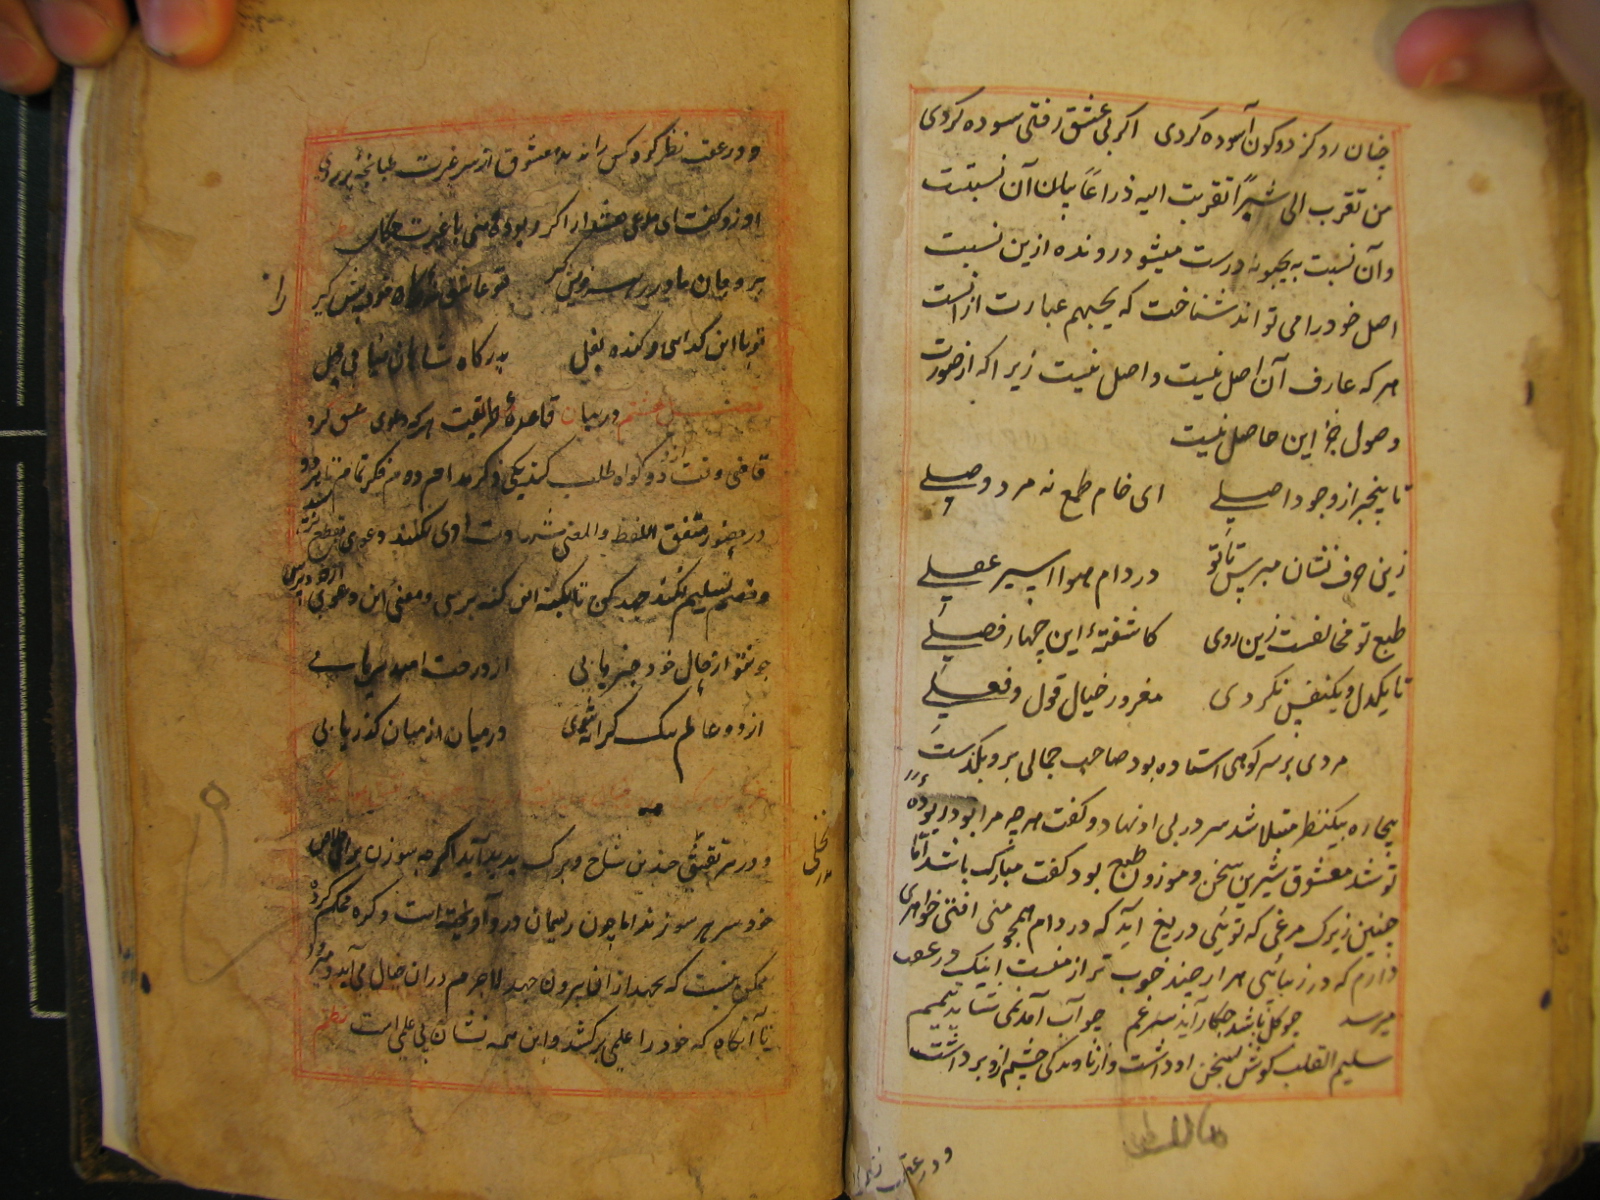 چنان رو کز دو کون آسوده کردی اکر بی عشق رفتی سوده کردی
من تقرب الی شبراً تقربت الیه ذراعاً بیان آن نسبتست
و آن نسبت به یحبونه درست میشود رونده ازین نسبت
اصل خود را می تواند شناخت که یحبهم عبارت از انست
هر که عارف آن اصل نیست واصل نیست زیرا که از صورت
وصول جز این حاصل نیست
تا بیخبر از وجود اصلی ای خام طمع نه مرد وصلی
زین حرف نشان مپرس تا تو در دام هوا اسیر عقلی
طبع تو مخالفست زین روی کاشفتهٔ این چهار فصلی
تا یکدل و یکنفس نکردی مغرور خیال قول و فعلی
مردی بر سر کوهی استاده بود صاحب جمالی برو بگذشت
بیچاره بیکنظر مبتلا شد سر در پی او نهاد و کفت هر چه مرا بود ربودهٔ
تو شد معشوق شیرین سخن و موزون طبع بود کفت مبارک باشد امّا
چنین زیرک مرغی که تویی دریغ آید که در دام همچو منی افتی خواهری
دارم که در زیبائی هزار چند خوب تر از منست اینک در عقب
میرسد چو کل باشد چکار آید سپرغم چو آب آمد نمی شاید تیمم
سلیم القلب کوش بسخن او داشت و از نا وبدکی چشم از و برداشت
و در عقب نظر
و در عقب نظر کرد کس را ندید معشوق از سر غیرت طبانچهٔ بر روی
او زد و کفت ای مدعی هشدار اکر ربودهٔ منی با غیرت چکار
برو جان ما درد سر و پیش کیر تو عاشق نهٔ راه خود پیش کیر
را
تو با این کدایی و کنده بغل بدرکاه شاهان میا بی محل
در بیان قاعدهٔ طریقت هر که دعوی عشق کرد
قاضی وقت ازو دو کواه طلب کند یکی ذکر مدام دوم فکر تمام تا هر دو
در حضور متفق اللفظ والمعنی شهادت ادی نکنند دعوی بقطع نرسد
و خصم تسلیم نکند جهد کن تا بکنه این کنه برسی و معنی این دعوی
چو تو از حال خود خبر یابی از درخت امید بر یابی
از دو عالم یک کرانه شوی در میان از میان کذر یابی
و در سر تفتیق چندین شاخ و برک پدید آید اکرچه سوزن برای خلاص
خود سر بر سو زند اما چون ریسمان در و آویخته است و کره محکم کرده
ممکن نیست که بجهد از ان بیرون جهد لاجرم در ان خیال می آید و میرود
تا آنکاه که خود را علمی بر کشد و این همه نشان بی علمی است نظم